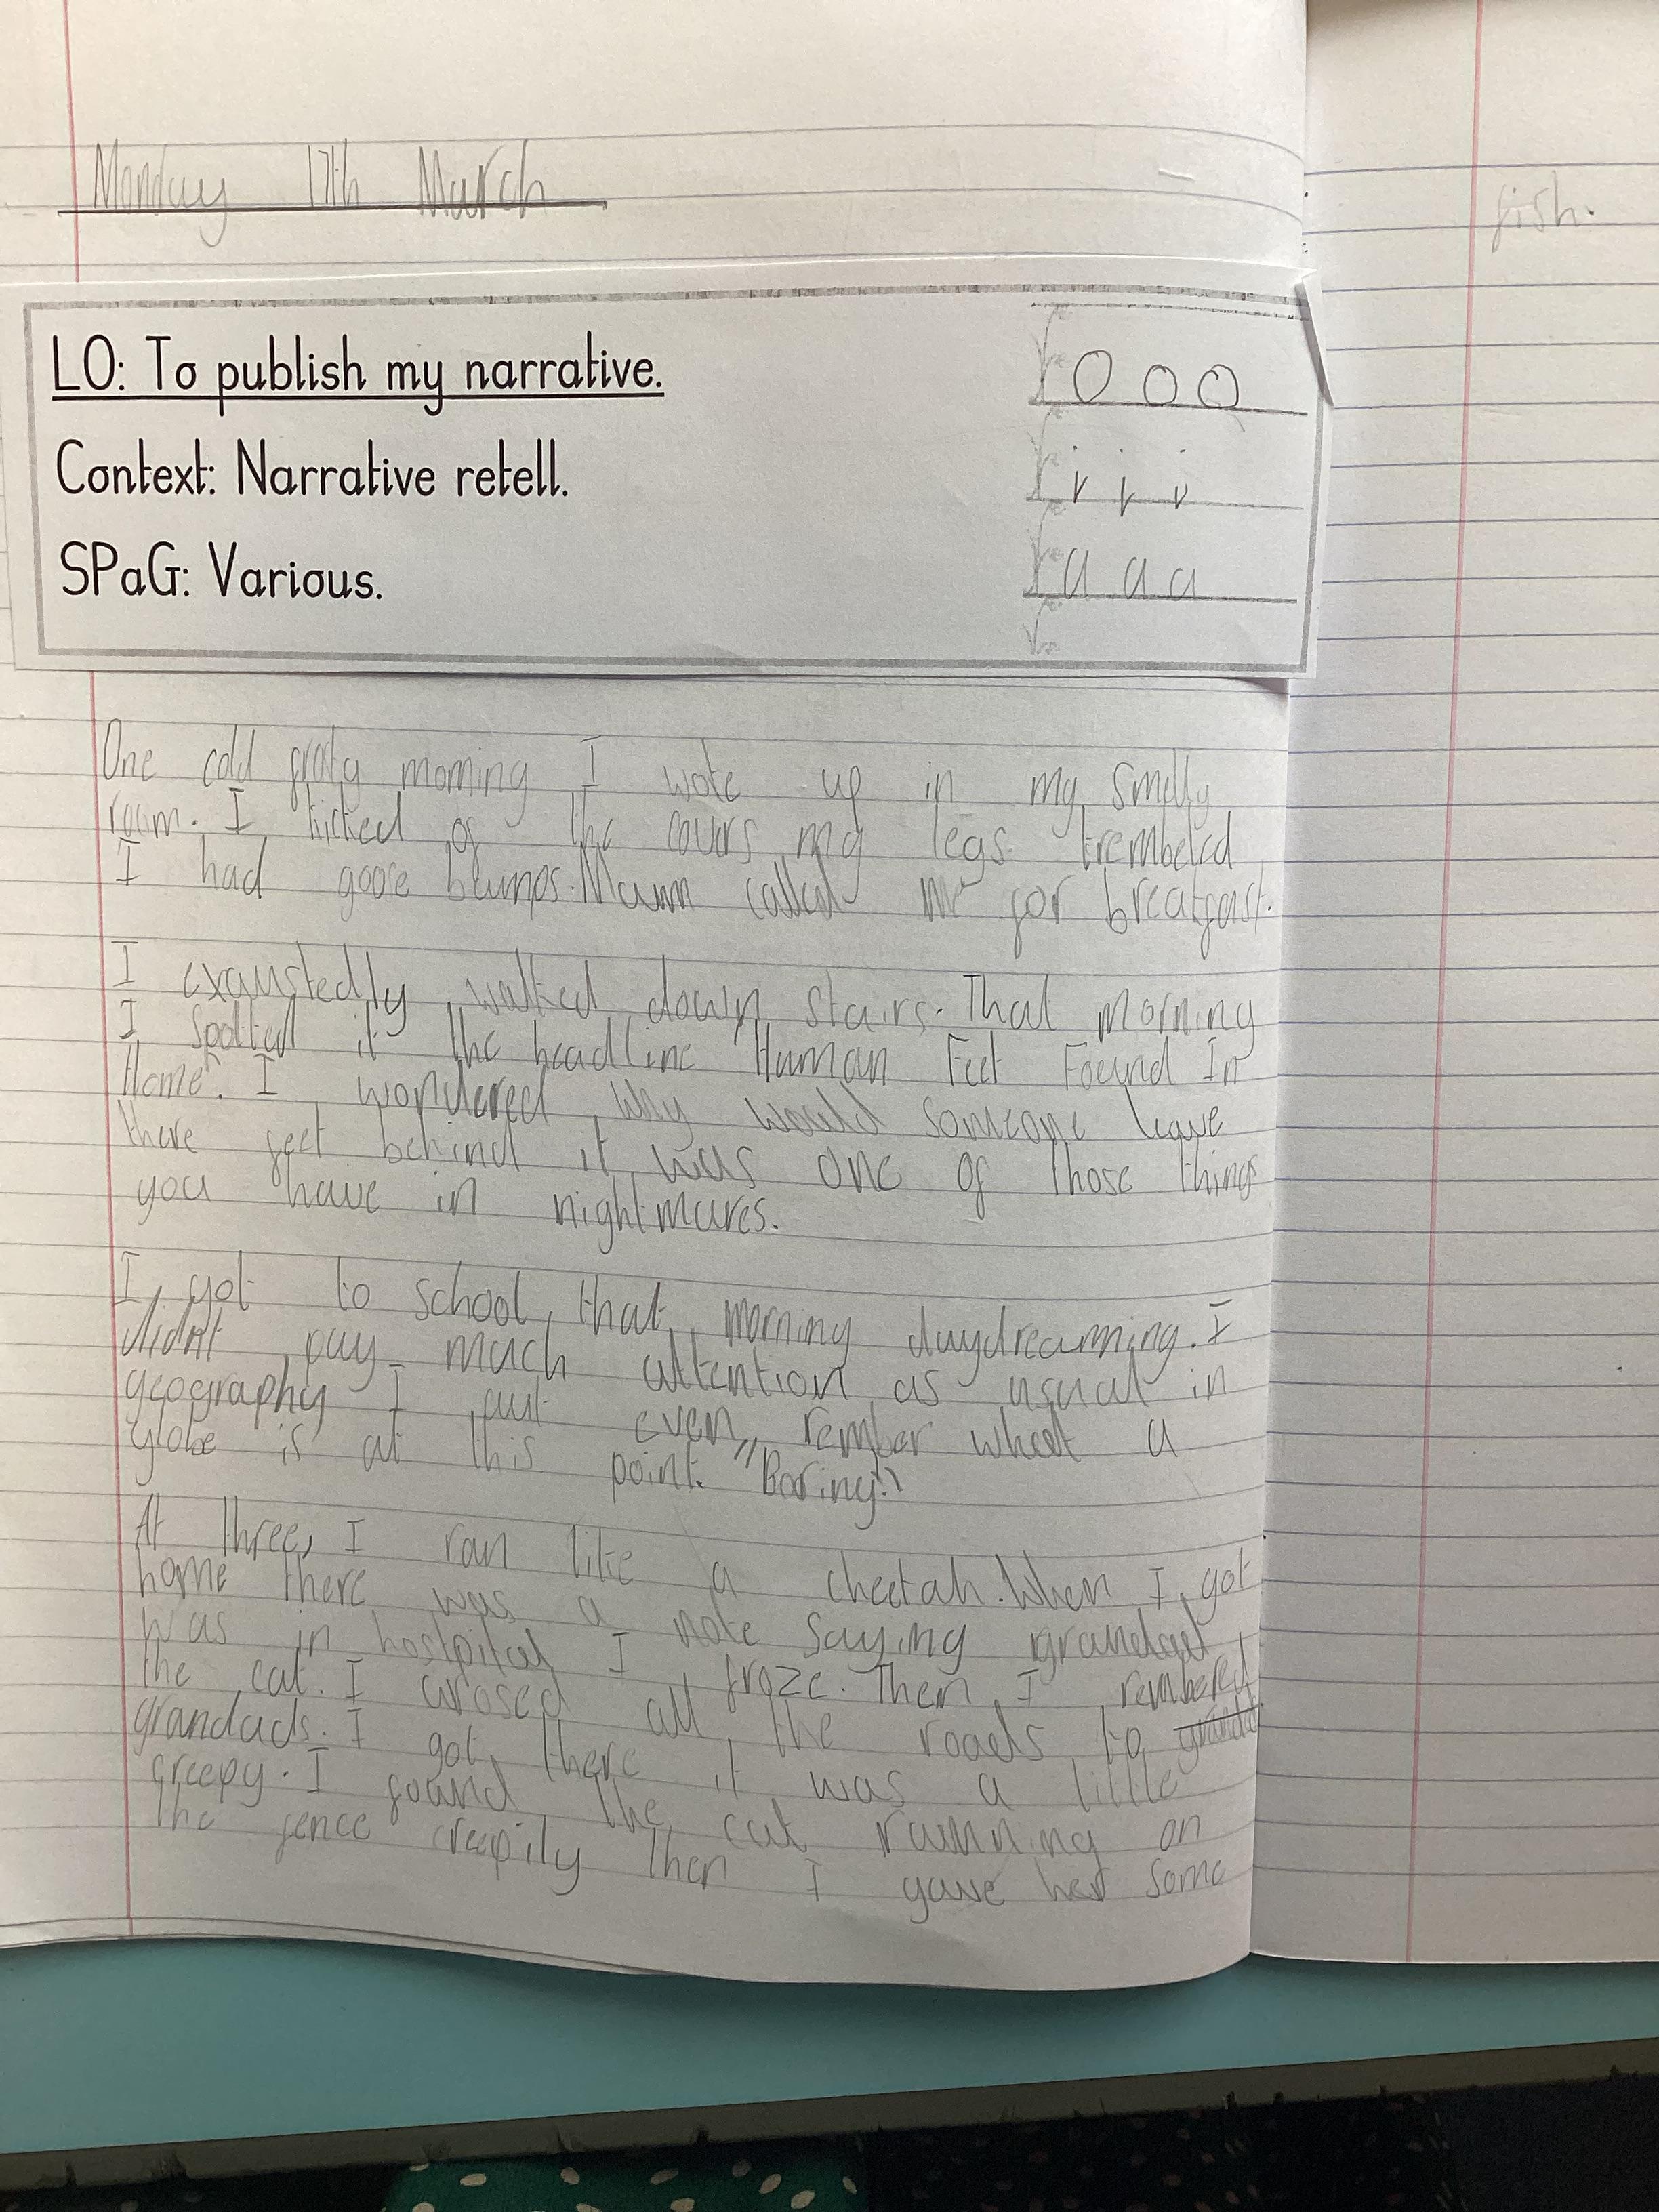 Monday 17th March
LO: To publish my narrative.
Context: Narrative retell.
SPaG: Various.
O o o
i i i
a a a
One cold morning I woke up in my smelly
room. I kicked of the covurs my legs trembeled
I had goose bumps. Mum called me for breakfast.
I exaustedly walked down stairs. That morning
I spotted it the headline "Human Feet Foeund In
Home". I wondered why would someone leave
there feet behind it was one of those things
you have in nightmares.
I got to school that morning daydreaming. I
didn't pay much attention as usual in
geography I even rember wheat a
globe is at this point. "Boring!"
At three, I ran like a cheetah. When I got
home there was a note saying grandad
was in hospital I froze. Then I rembered
the cat. I crosed all the roads to
grandads. I got there it was a little
creepy. I found the cat running on
the fence creepily then I gave her some
fish.